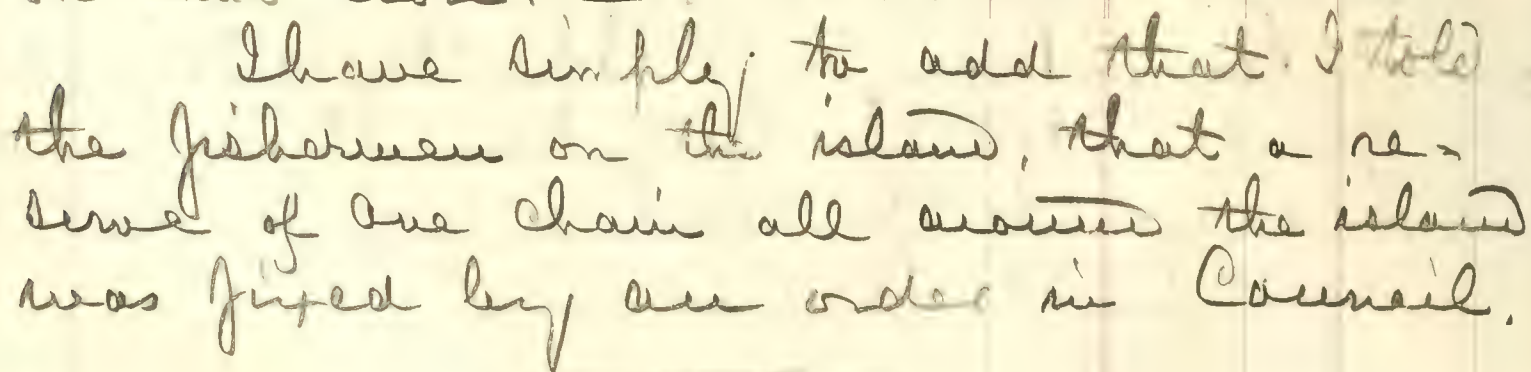 I have simply to add that I told
the fishermen on the island, that a re-
serve of one chain all around the island
was fixed by an order in Council.